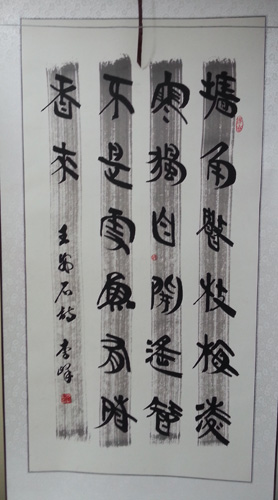 墻角數枝梅凌
寒獨自開遙知
不是雪為有暗
香來
王安石詩 李峰